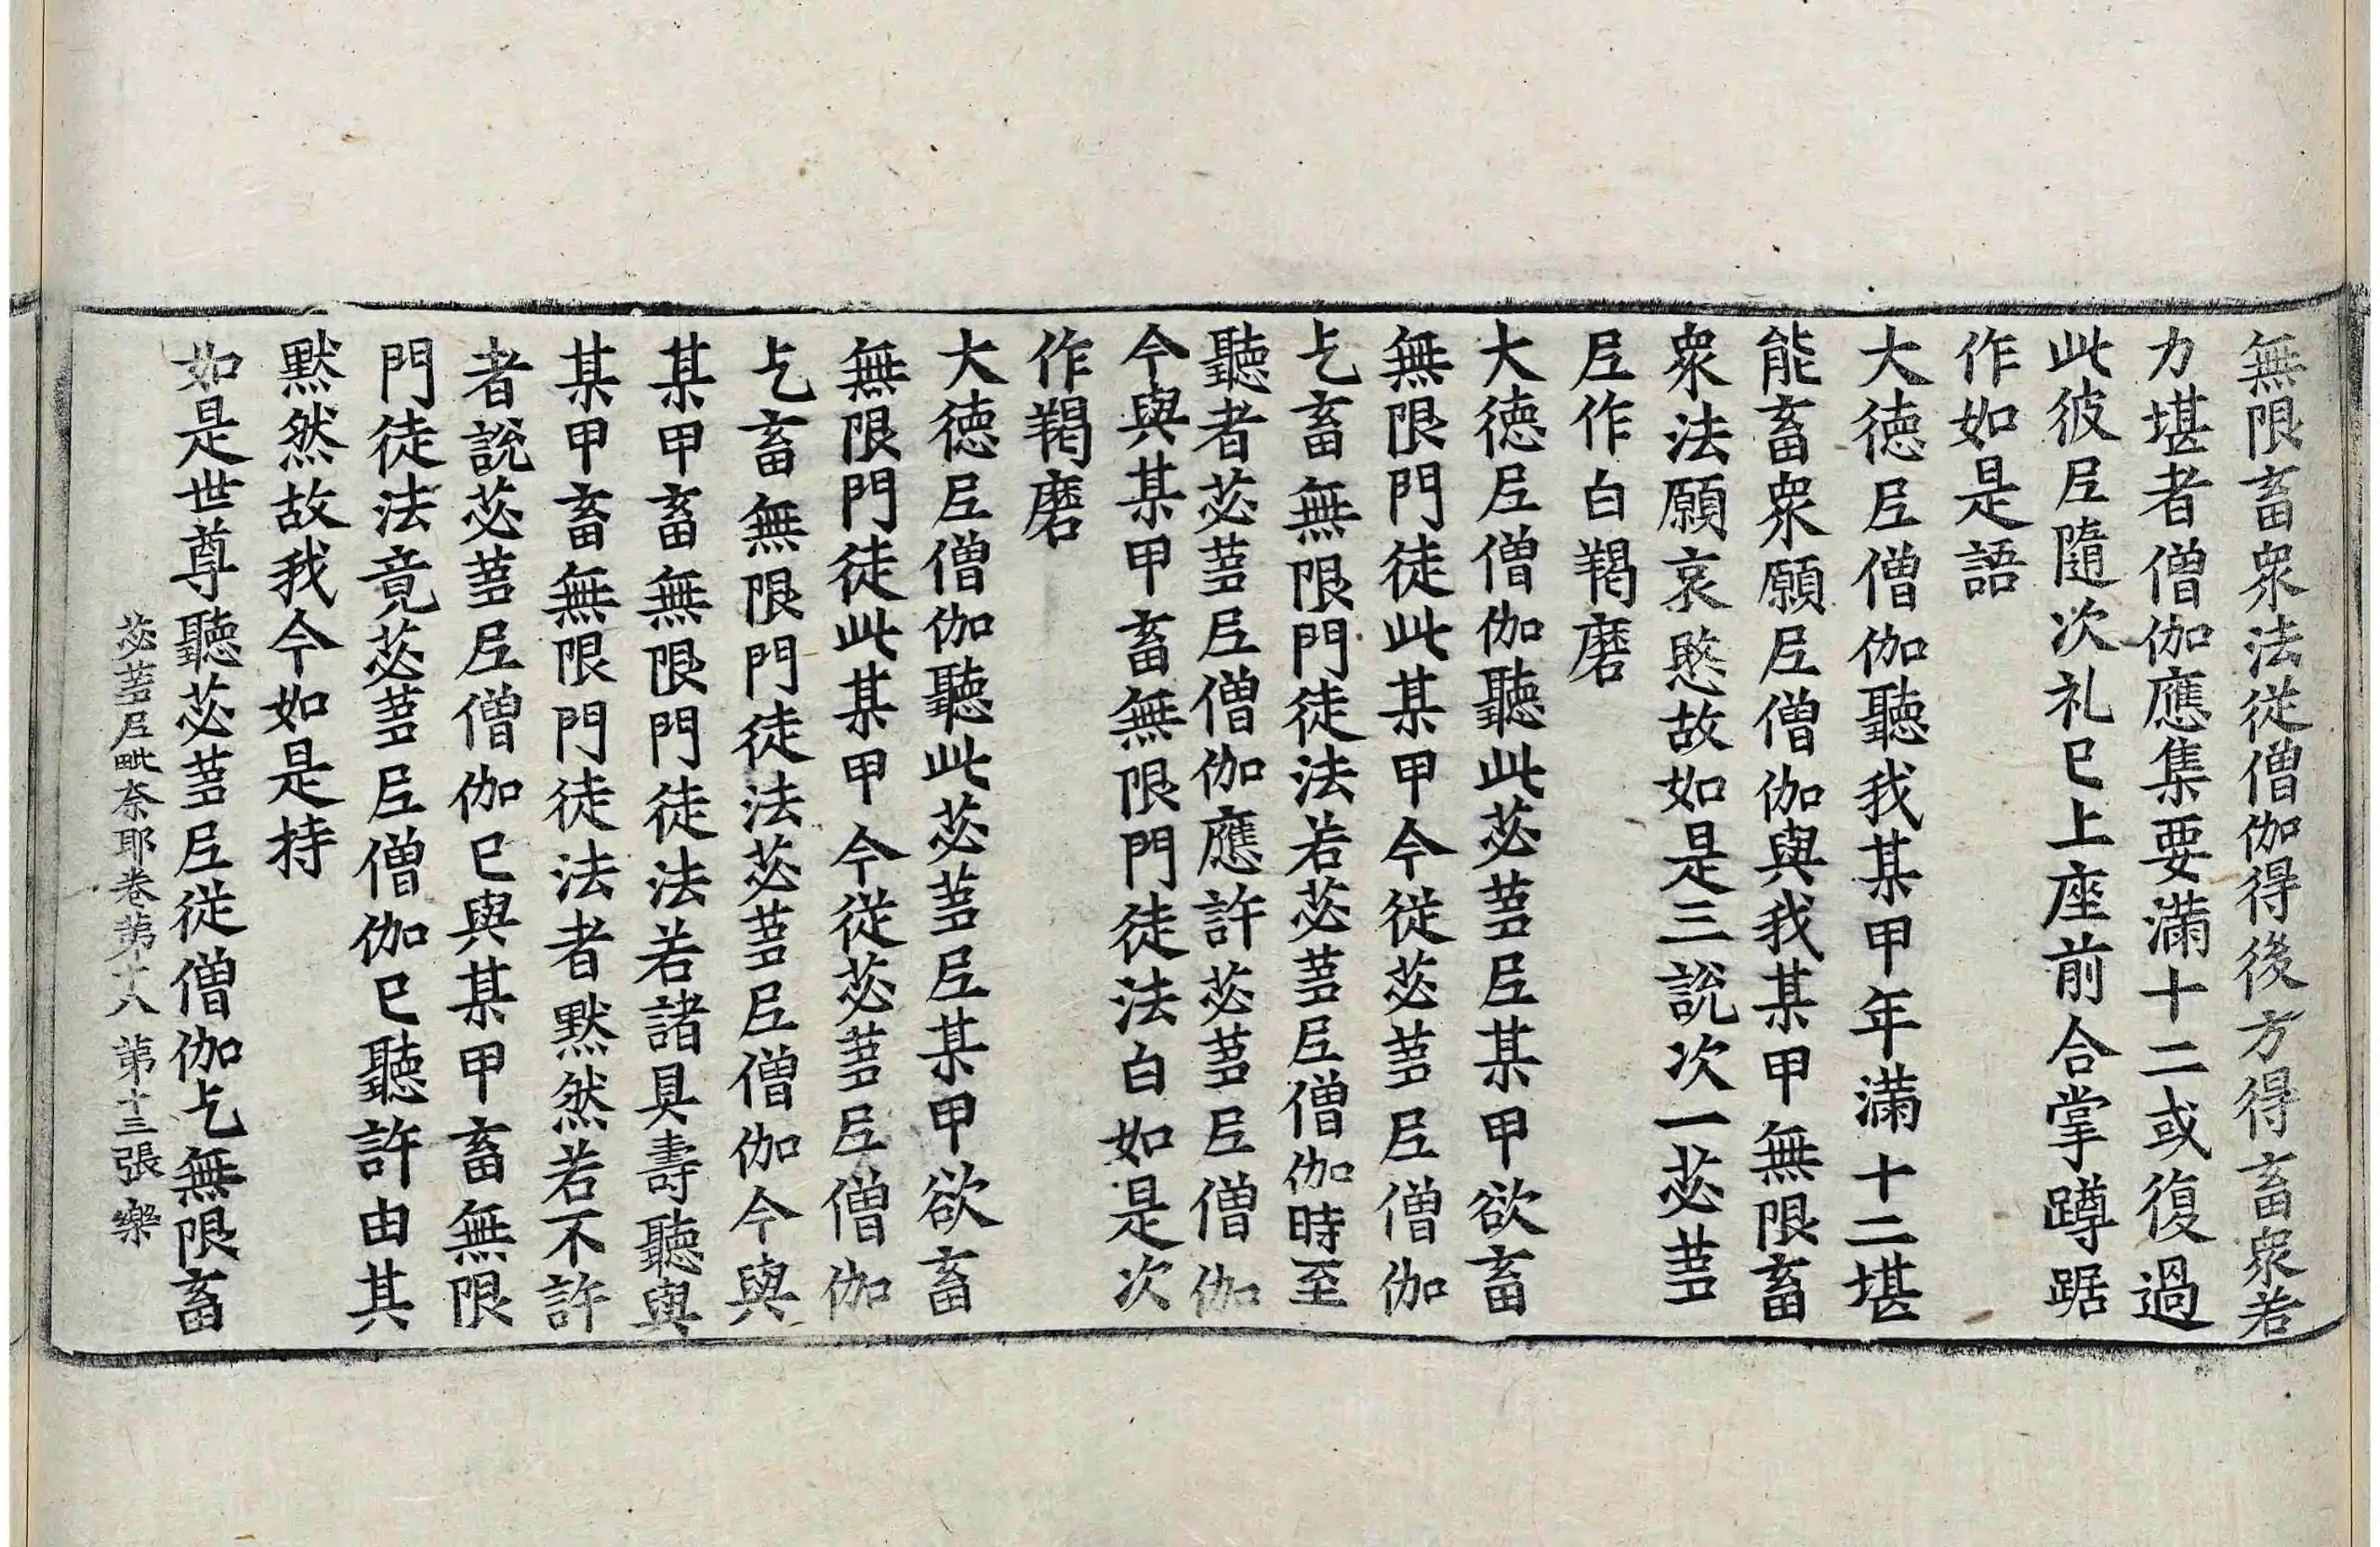 無限畜衆法從僧伽得後方得畜衆若
力堪者僧伽應集要滿十二或復過
此彼尼隨次礼已上座前合掌蹲踞
作如是語
大德尼僧伽聽我某甲年滿十二堪
能畜衆願尼僧伽與我某甲無限畜
衆法願哀愍故如是三說次一苾蒭
尼作白羯磨
大德尼僧伽聽此苾蒭尼某甲欲畜
無限門徒此某甲今從苾蒭尼僧伽
乞畜無限門徒法若苾蒭尼僧伽時至
聽者苾蒭尼僧伽應許苾蒭尼僧伽
今與某甲畜無限門徒法白如是次
作羯磨
大德尼僧伽聽此苾蒭尼某甲欲畜
無限門徒此某甲今從苾蒭尼僧伽
乞畜無限門徒法苾蒭尼僧伽今與
某甲畜無限門徒法若諸具壽聽與
某甲畜無限門徒法者默然若不許
者說苾蒭尼僧伽已與某甲畜無限
門徒法竟苾蒭尼僧伽已聽許由其
默然故我今如是持
如是世尊聽苾蒭尼從僧伽乞無限畜
苾蒭尼毗奈耶卷第十八 第十三張 樂